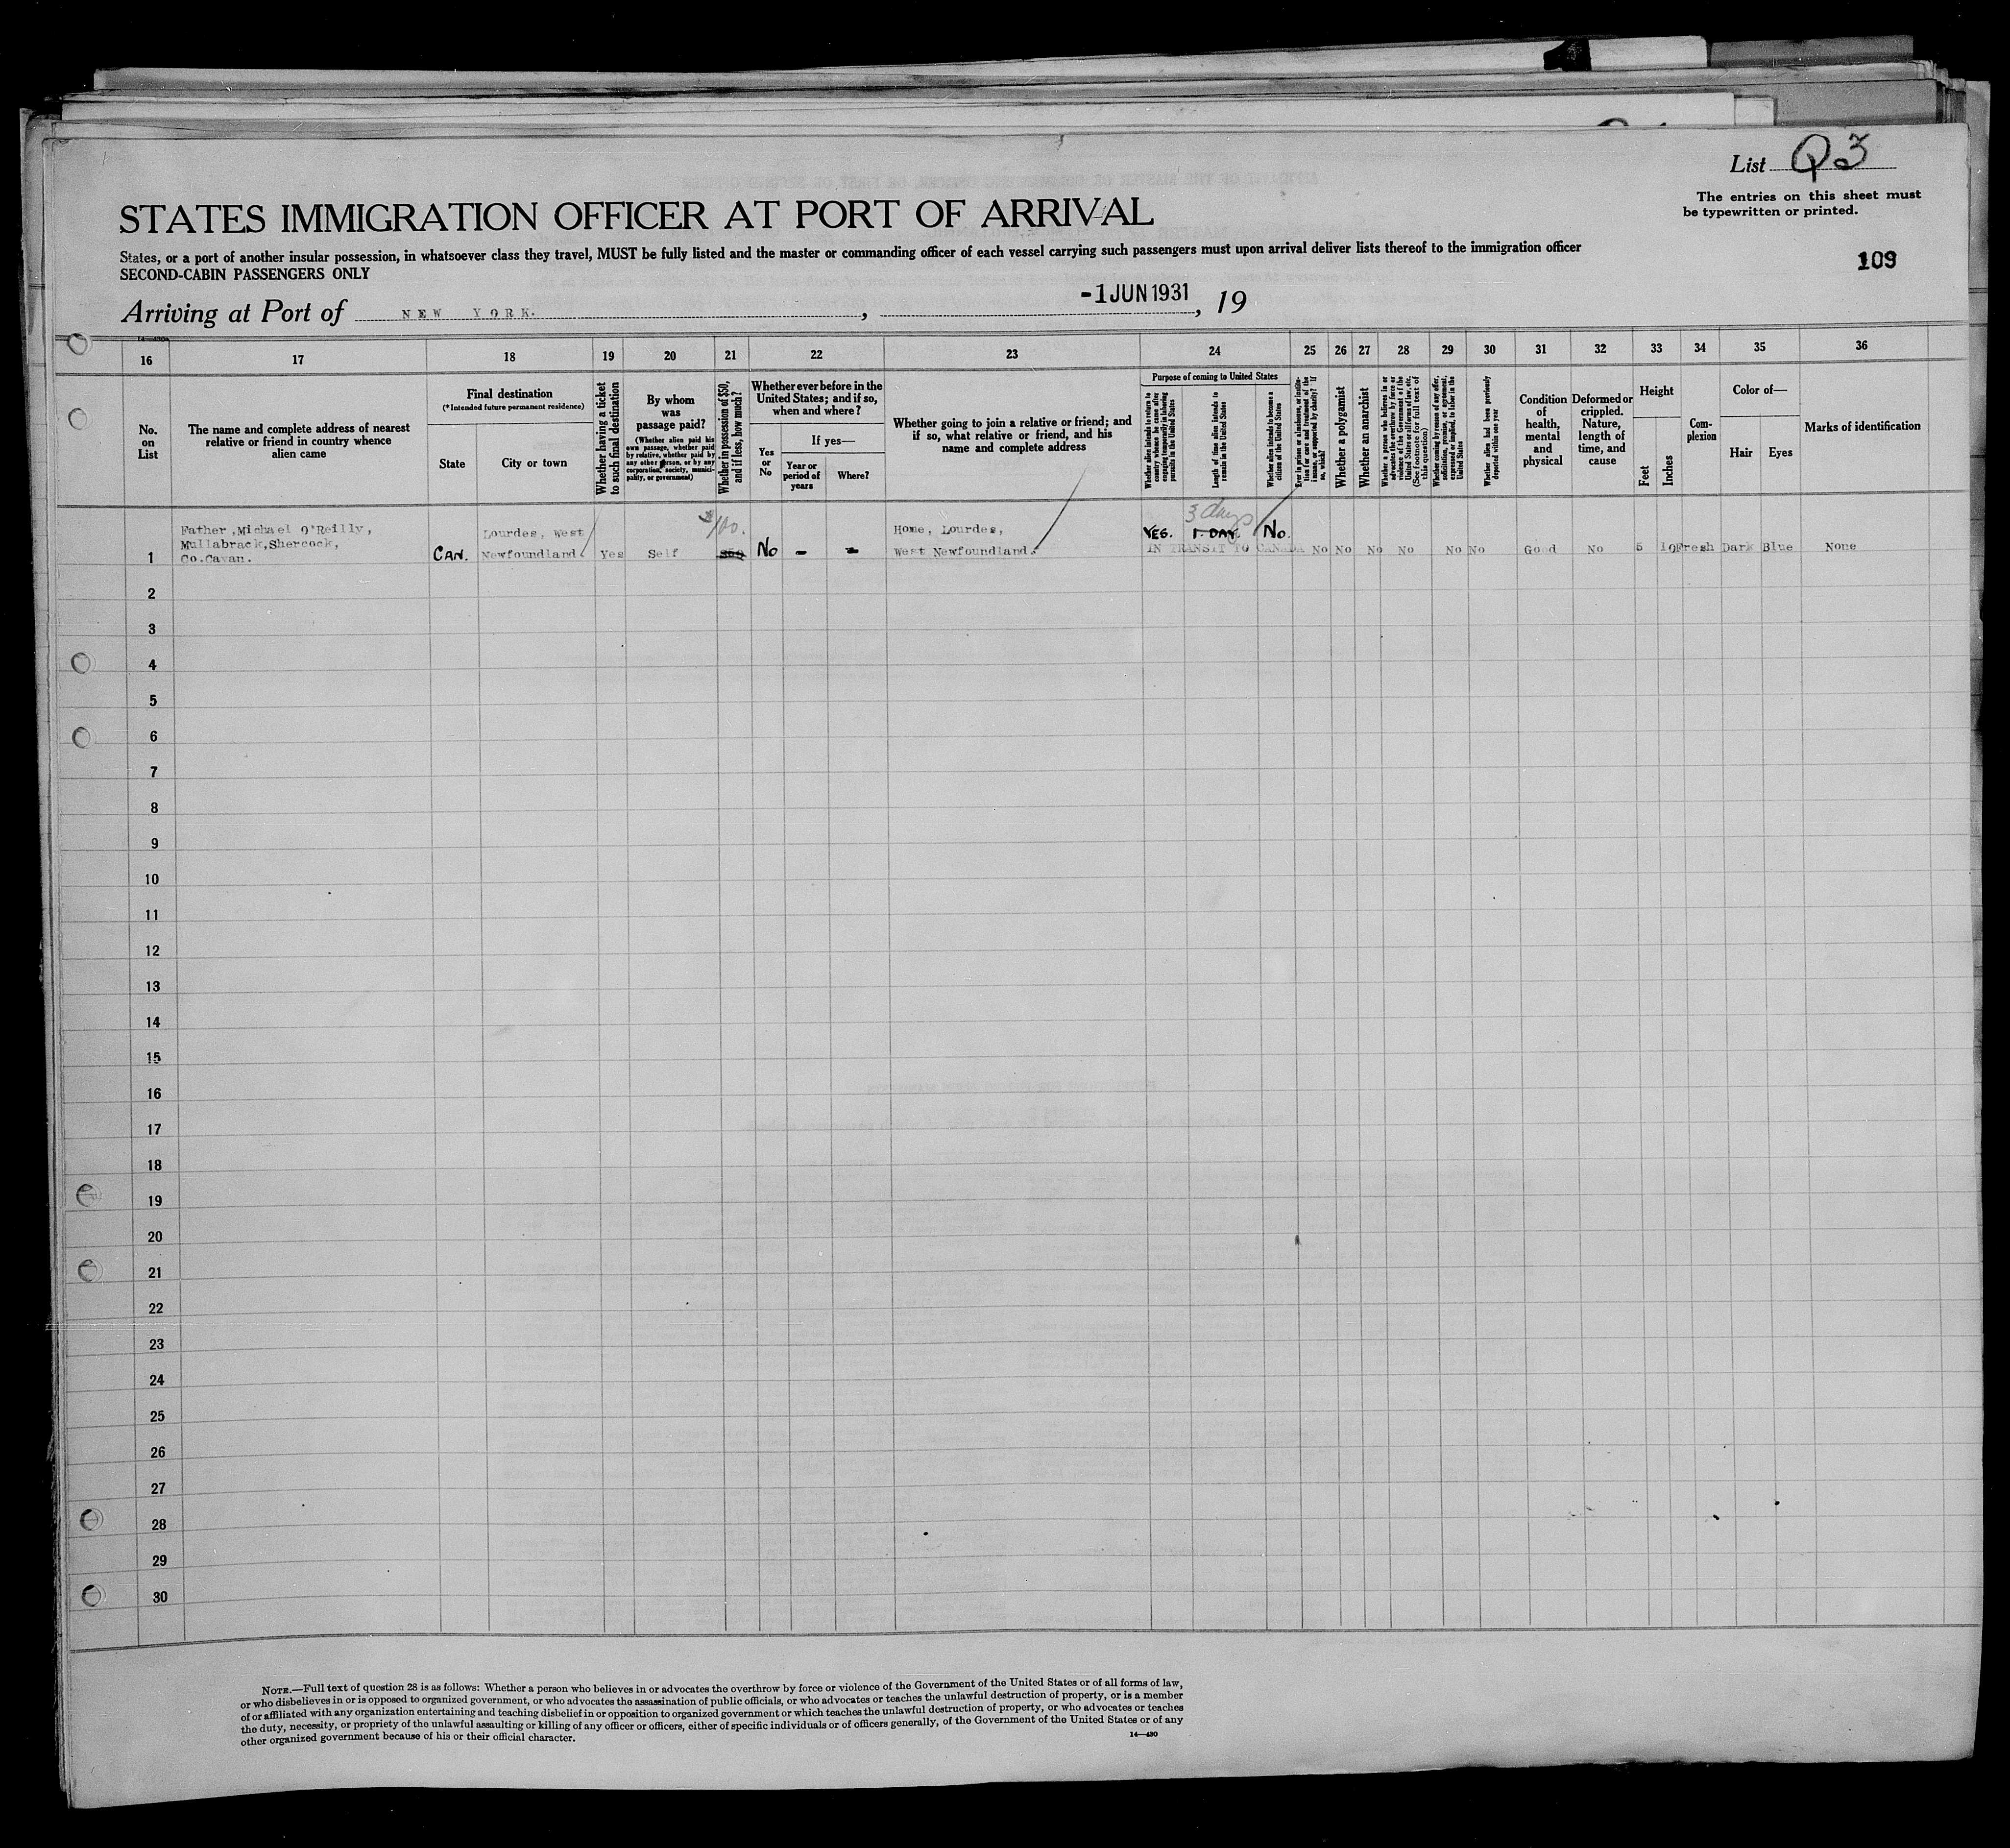 List Q3
The entries on this sheet must
be typewritten or printed.
STATES IMMIGRATION OFFICER AT PORT OF ARRIVAL
States, or a port of another insular possession, in whatsoever class they travel, MUST be fully listed and the master or commanding officer of each vessel carrying such passengers must upon arrival deliver lists thereof to the immigration officer
SECOND-CABIN PASSENGERS ONLY
109
Arriving at Port of NEW YORK. , -1 JUN 1931 , 19
16 17 18 19 20 21 22 23 24 25 26 27 28 29 30 31 32 33 34 35 36
No.
on
List
The name and complete address of nearest
relative or friend in country whence
alien came
Final destination
(*Intended future permanent residence)
State
City or town
Whether having a ticket
to such final destination
By whom
was
passage paid?
(Whether alien paid his
own passage, whether paid
by relative, whether paid by
any other person, or by any
corporation, society, munici-
pality, or government)
Whether in possession of $50,
and if less, how much?
Whether ever before in the
United States; and if so,
when and where?
Yes
or
No
If yes—
Year or
period of
years
Where?
Whether going to join a relative or friend; and
if so, what relative or friend, and his
name and complete address
Purpose of coming to United States
Whether alien intends to return to
country whence he came after
engaging temporarily in laboring
pursuits in the United States
Length of time alien intends to
remain in the United States
Whether alien intends to become a
citizen of the United States
Ever in prison or almshouse, or institu-
tion for care and treatment of the
insane, or supported by charity? If
so, which?
Whether a polygamist
Whether an anarchist
Whether a person who believes in or
advocates the overthrow by force or
violence of the Government of the
United States or all forms of law, etc.
(See footnote for full text of
this question)
Whether coming by reason of any offer,
solicitation, promise, or agreement,
expressed or implied, to labor in the
United States
Whether alien had been previously
deported within one year
Condition
of
health,
mental
and
physical
Deformed or
crippled.
Nature,
length of
time, and
cause
Height
Feet
Inches
Com-
plexion
Color of—
Hair
Eyes
Marks of identification
Father, Michael O'Reilly, Lourdes, West 100. Home, Lourdes, YES. 3 days 1 DAY. No.
Mullabrack, Shercock, CAN. Newfoundland. Yes Self No - - West Newfoundland. IN TRANSIT TO CANADA No No No No No No Good No 5 10 Fresh Dark Blue None
1 Co. Cavan.
2
3
4
5
6
7
8
9
10
11
12
13
14
15
16
17
18
19
20
21
22
23
24
25
26
27
28
29
30
NOTE.—Full text of question 28 is as follows: Whether a person who believes in or advocates the overthrow by force or violence of the Government of the United States or of all forms of law,
or who disbelieves in or is opposed to organized government, or who advocates the assassination of public officials, or who advocates or teaches the unlawful destruction of property, or is a member
of or affiliated with any organization entertaining and teaching disbelief in or opposition to organized government or which teaches the unlawful destruction of property, or who advocates or teaches
the duty, necessity, or propriety of the unlawful assaulting or killing of any officer or officers, either of specific individuals or of officers generally, of the Government of the United States or of any
other organized government because of his or their official character.
14—430